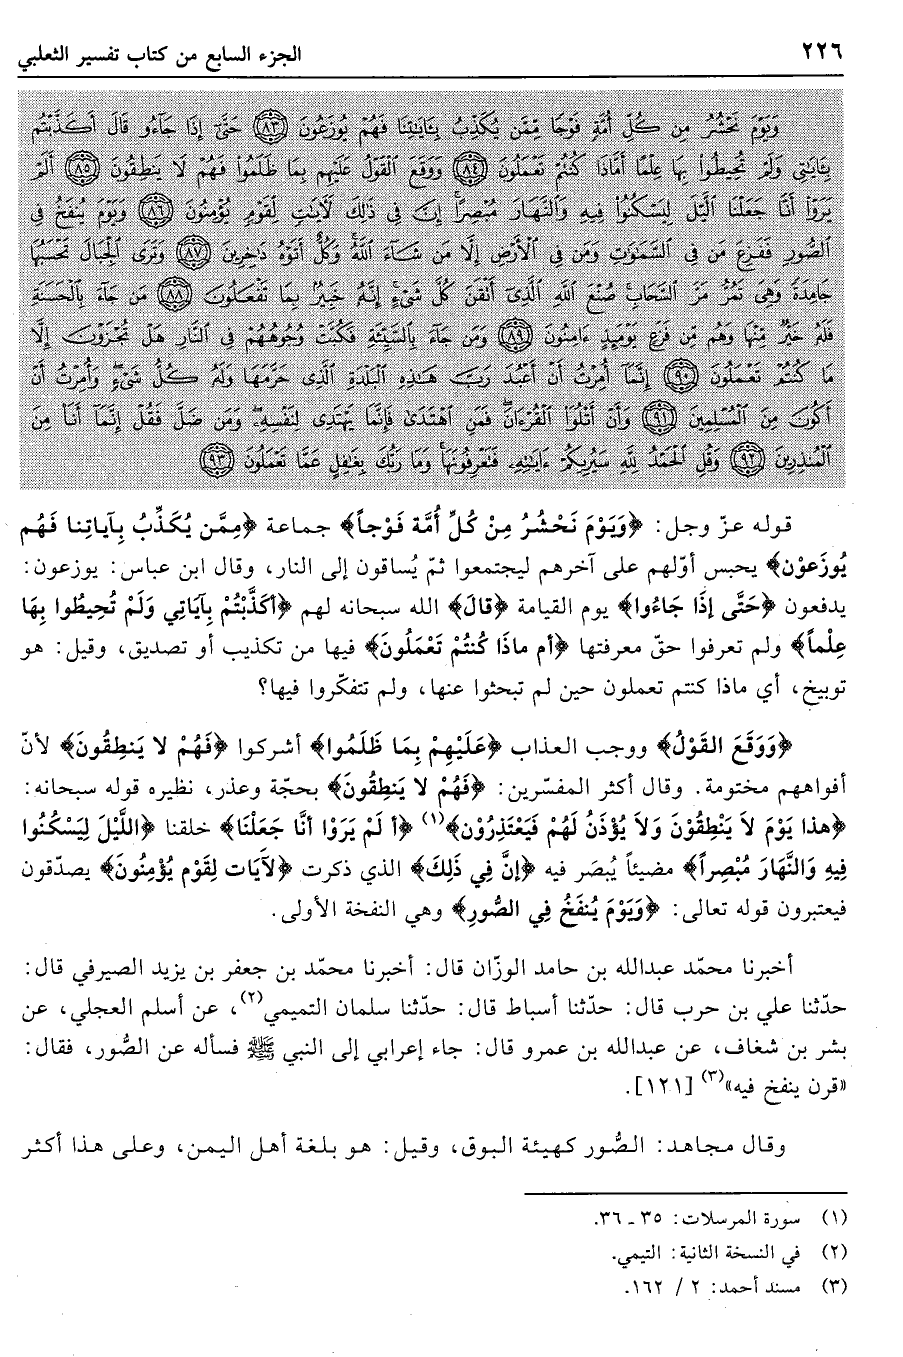 ٢٢٦ الجزء السابع من كتاب تفسير الثعلبي
وَيَوْمَ نَحْشُرُ مِن كُلِّ أُمَّةٍ فَوْجًا مِّمَّن يُكَذِّبُ بِـَٔايَٰتِنَا فَهُمْ يُوزَعُونَ ٨٣ حَتَّىٰٓ إِذَا جَآءُو قَالَ أَكَذَّبْتُم
بِـَٔايَٰتِى وَلَمْ تُحِيطُوا۟ بِهَا عِلْمًا أَمَّاذَا كُنتُمْ تَعْمَلُونَ ٨٤ وَوَقَعَ ٱلْقَوْلُ عَلَيْهِم بِمَا ظَلَمُوا۟ فَهُمْ لَا يَنطِقُونَ ٨٥ أَلَمْ
يَرَوْا۟ أَنَّا جَعَلْنَا ٱلَّيْلَ لِيَسْكُنُوا۟ فِيهِ وَٱلنَّهَارَ مُبْصِرًا إِنَّ فِى ذَٰلِكَ لَـَٔايَٰتٍ لِّقَوْمٍ يُؤْمِنُونَ ٨٦ وَيَوْمَ يُنفَخُ فِى
ٱلصُّورِ فَفَزِعَ مَن فِى ٱلسَّمَٰوَٰتِ وَمَن فِى ٱلْأَرْضِ إِلَّا مَن شَآءَ ٱللَّهُ وَكُلٌّ أَتَوْهُ دَٰخِرِينَ ٨٧ وَتَرَى ٱلْجِبَالَ تَحْسَبُهَا
جَامِدَةً وَهِىَ تَمُرُّ مَرَّ ٱلسَّحَابِ صُنْعَ ٱللَّهِ ٱلَّذِىٓ أَتْقَنَ كُلَّ شَىْءٍ إِنَّهُۥ خَبِيرٌۢ بِمَا تَفْعَلُونَ ٨٨ مَن جَآءَ بِٱلْحَسَنَةِ
فَلَهُۥ خَيْرٌ مِّنْهَا وَهُم مِّن فَزَعٍ يَوْمَئِذٍ ءَامِنُونَ ٨٩ وَمَن جَآءَ بِٱلسَّيِّئَةِ فَكُبَّتْ وُجُوهُهُمْ فِى ٱلنَّارِ هَلْ تُجْزَوْنَ إِلَّا
مَا كُنتُمْ تَعْمَلُونَ ٩٠ إِنَّمَآ أُمِرْتُ أَنْ أَعْبُدَ رَبَّ هَٰذِهِ ٱلْبَلْدَةِ ٱلَّذِى حَرَّمَهَا وَلَهُۥ كُلُّ شَىْءٍ وَأُمِرْتُ أَنْ
أَكُونَ مِنَ ٱلْمُسْلِمِينَ ٩١ وَأَنْ أَتْلُوَا۟ ٱلْقُرْءَانَ فَمَنِ ٱهْتَدَىٰ فَإِنَّمَا يَهْتَدِى لِنَفْسِهِۦ وَمَن ضَلَّ فَقُلْ إِنَّمَآ أَنَا۠ مِنَ
ٱلْمُنذِرِينَ ٩٢ وَقُلِ ٱلْحَمْدُ لِلَّهِ سَيُرِيكُمْ ءَايَٰتِهِۦ فَتَعْرِفُونَهَا وَمَا رَبُّكَ بِغَٰفِلٍ عَمَّا تَعْمَلُونَ ٩٣
قوله عزّ وجل: ﴿وَيَوْمَ نَحْشُرُ مِنْ كُلِّ أُمَّة فَوْجاً﴾ جماعة ﴿مِمَّن يُكَذِّبُ بِآياتِنا فَهُم
يُوزَعوْن﴾ يحبس أوّلهم على آخرهم ليجتمعوا ثمّ يُساقون إلى النار، وقال ابن عباس: يوزعون:
يدفعون ﴿حَتَّى إذَا جَاءُوا﴾ يوم القيامة ﴿قالَ﴾ الله سبحانه لهم ﴿أكَذَّبْتُم بِآيَاتِي وَلَمْ تُحِيطُوا بِهَا
عِلْماً﴾ ولم تعرفوا حقّ معرفتها ﴿أم ماذَا كُنتُمْ تَعْمَلُونَ﴾ فيها من تكذيب أو تصديق، وقيل: هو
توبيخ، أي ماذا كنتم تعملون حين لم تبحثوا عنها، ولم تتفكّروا فيها؟
﴿وَوَقَعَ القَوْلُ﴾ ووجب العذاب ﴿عَلَيْهِمْ بِمَا ظَلَمُوا﴾ أشركوا ﴿فَهُمْ لا يَنطِقُونَ﴾ لأنّ
أفواههم مختومة. وقال أكثر المفسّرين: ﴿فَهُمْ لا يَنطِقُونَ﴾ بحجّة وعذر، نظيره قوله سبحانه:
﴿هذا يَوْم لاَ يَنطِقُوْنَ وَلاَ يُؤْذَنُ لَهُمْ فَيَعْتَذِرُوْن﴾(١) ﴿أ لَمْ يَرَوْا أنَّا جَعَلْنَا﴾ خلقنا ﴿اللَّيْلَ لِيَسْكُنُوا
فِيهِ وَالنَّهَارَ مُبْصِراً﴾ مضيئاً يُبصَر فيه ﴿إنَّ فِي ذَلِكَ﴾ الذي ذكرت ﴿لآيَات لِقَوْم يُؤْمِنُونَ﴾ يصدّقون
فيعتبرون قوله تعالى: ﴿وَيَوْمَ يُنفَخُ فِي الصُّورِ﴾ وهي النفخة الأولى.
أخبرنا محمّد عبدالله بن حامد الوزّان قال: أخبرنا محمّد بن جعفر بن يزيد الصيرفي قال:
حدّثنا علي بن حرب قال: حدّثنا أسباط قال: حدّثنا سلمان التميمي(٢)، عن أسلم العجلي، عن
بشر بن شغاف، عن عبدالله بن عمرو قال: جاء إعرابي إلى النبي ﷺ فسأله عن الصُّور، فقال:
«قرن ينفخ فيه»(٣) [١٢١].
وقال مجاهد: الصُّور كهيئة البوق، وقيل: هو بلغة أهل اليمن، وعلى هذا أكثر
(١) سورة المرسلات: ٣٥ ـ ٣٦.
(٢) في النسخة الثانية: التيمي.
(٣) مسند أحمد: ٢ / ١٦٢.